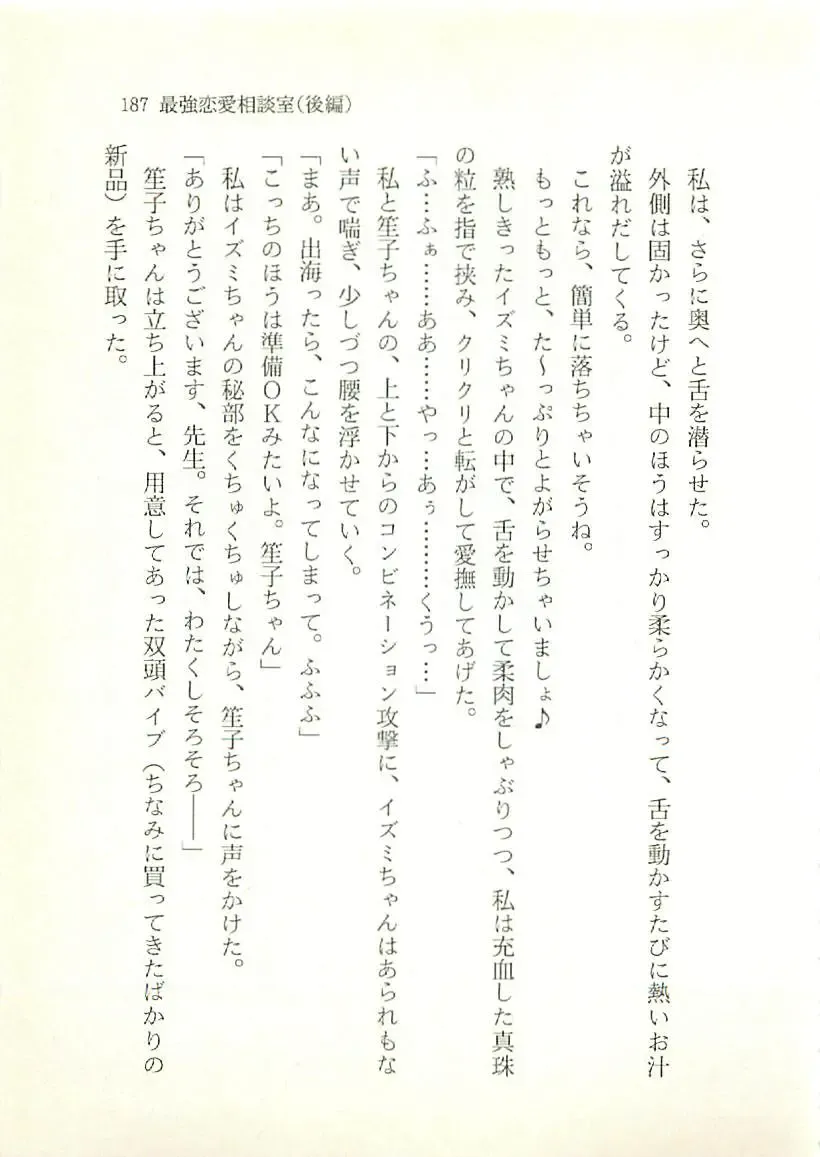 187 最強恋愛相談室(後編)
私は、さらに奥へと舌を潜らせた。
外側は固かったけど、中のほうはすっかり柔らかくなって、舌を動かすたびに熱いお汁
が溢れだしてくる。
これなら、簡単に落ちちゃいそうね。
もっともっと、た〜っぷりとよがらせちゃいましょ♪
熟しきったイズミちゃんの中で、舌を動かして柔肉をしゃぶりつつ、私は充血した真珠
の粒を指で挟み、クリクリと転がして愛撫してあげた。
「ふ…ふぁ……ああ……やっ…あぅ………くうっ…」
私と笙子ちゃんの、上と下からのコンビネーション攻撃に、イズミちゃんはあられもな
い声で喘ぎ、少しづつ腰を浮かせていく。
「まあ。出海ったら、こんなになってしまって。ふふふ」
「こっちのほうは準備OKみたいよ。笙子ちゃん」
私はイズミちゃんの秘部をくちゅくちゅしながら、笙子ちゃんに声をかけた。
「ありがとうございます、先生。それでは、わたくしそろそろ――」
笙子ちゃんは立ち上がると、用意してあった双頭バイブ(ちなみに買ってきたばかりの
新品)を手に取った。